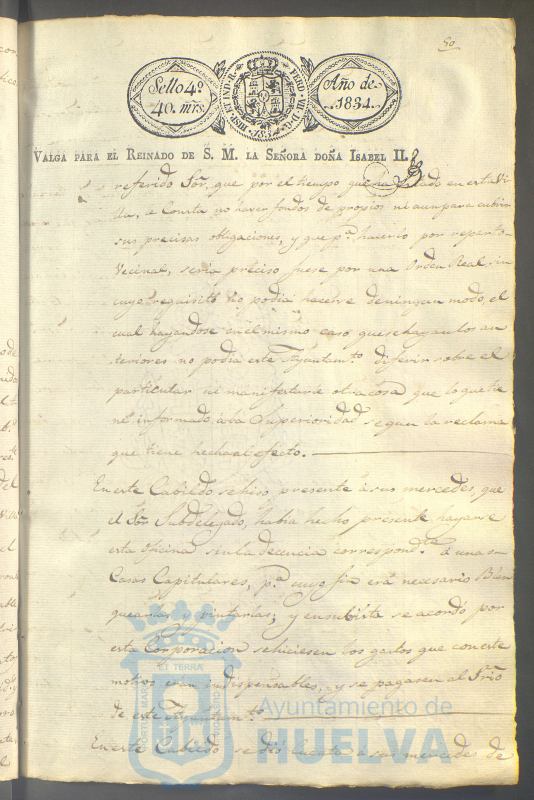 50
Sello 4º
40. mrs.
HISP. ET IND. R. FERD. VII. D. G.
1834
Año de
1834.
VALGA PARA EL REINADO DE S. M. LA SEÑORA DOÑA ISABEL II.
referido Sor. que por el tiempo que ha estado en esta Vi
lla, a Consta no haver fondos de propios ni aun para cubrir
sus precisas obligaciones, y que pa. hacerlo por reparto
Vecinal, seria preciso fuese por una Orden Real, sin
cuyo requisito no podia hacerse de ningun modo, el
cual hayandose en el mismo caso que se hayan los an
teriores no podia este Ayuntamto. diferir sobre el
particular ni manifestarle otra cosa que lo que tie
ne informado á la Superioridad segun la reclama
que tiene hecha al efecto.
En este Cabildo se hiso presente á sus mercedes que
el Sor. Subdelegado, habia hecho presente hayarse
esta oficina sin la decencia correspondte. á unas
Casas Capitulares, pa. cuyo fin era necesario Blan
quearlas y pintarlas; y en su vista se acordó por
esta Corporacion se hiciesen los gastos que con este
motivo eran indispensables, y se pagasen al Srio
de este Ayuntamto.
En este Cabildo se dió cuenta a sus mercedes de
PORTUS MARIS
ET TERRÆ
CUSTODIA
Ayuntamiento de
HUELVA